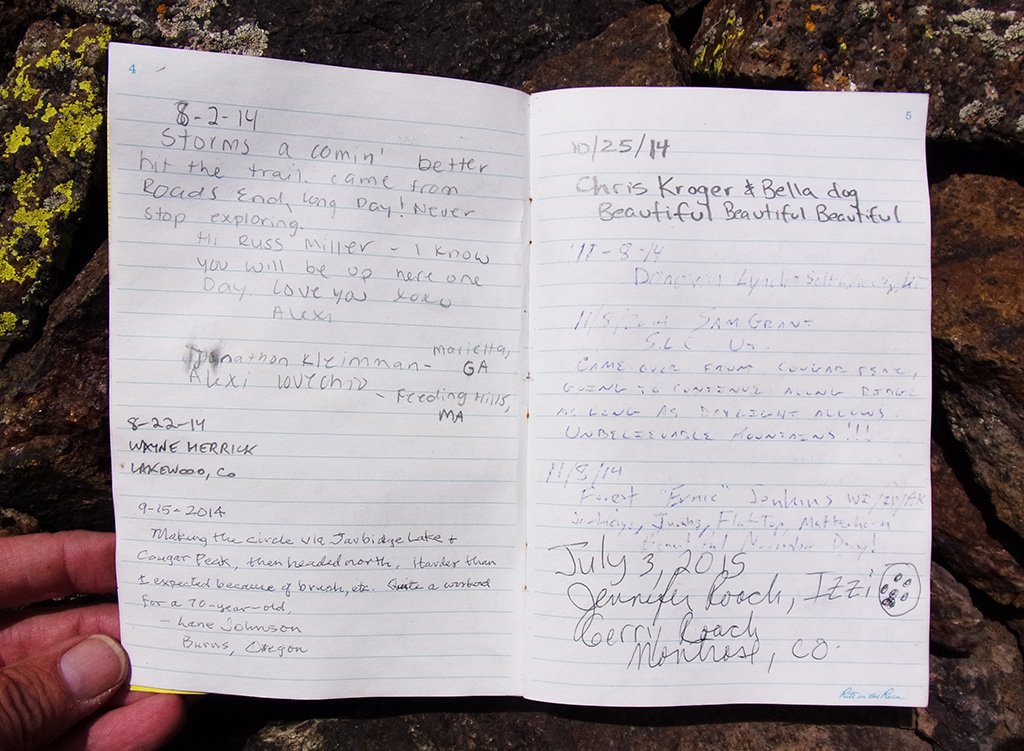 4
8-2-14
Storms a comin' better
hit the trail. came from
Roads End, long Day! Never
stop exploring.
Hi Russ Miller - I know
you will be up here one
Day Love you xoxo
Alexi
Jonathon Kleimman- Marietta,
GA
Alexi Lovechio
- Feeding Hills,
MA
8-22-14
WAYNE HERRICK
LAKEWOOD, CO
9-15-2014
Making the circle via Jarbidge Lake &
Cougar Peak, then headed north. Harder than
I expected because of brush, etc. Quite a workout
for a 70-year-old.
- Lane Johnson
Burns, Oregon
5
10/25/14
Chris Kroger & Bella dog
Beautiful Beautiful Beautiful
11-8-14
Lynch -
11/8/2014 SAM GRANT
S.L.C. UT.
CAME OVER FROM COUGAR PEAK,
GOING TO CONTINUE ALONG RIDGE
AS LONG AS DAYLIGHT ALLOWS.
UNBELIEVABLE MOUNTAINS!!!
11/8/14
Forest "Ernie" Jenkins WI/ID/AK
Jarbidge, Jumbo, Flat Top, Matterhorn
Beautiful November Day!
July 3, 2015
Jennifer Roach, Izzi
Gerry Roach
Montrose, CO.
Rite in the Rain